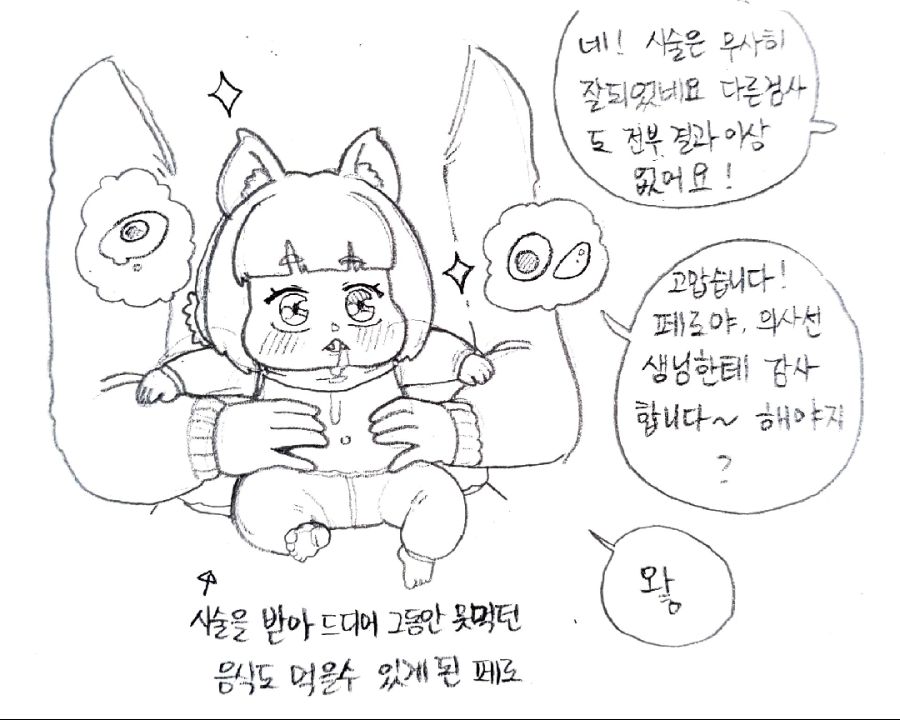 네! 시술은 무사히
잘되었네요 다른검사
도 전부 결과 이상
없어요!
고맙습니다!
페로야, 의사선
생닝한테 감사
합니다~ 해야지
?
왛
시술을 받아 드디어 그동안 못먹던
음식도 먹을수 있게 된 페로